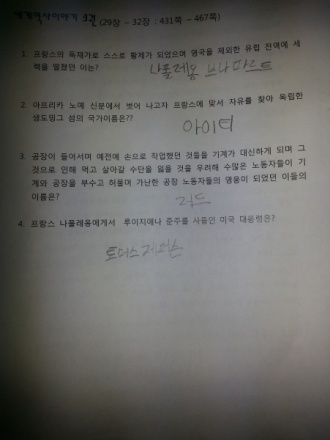 세계역사이야기 3권 (29장 - 32장 : 431쪽 ~ 467쪽)
1. 프랑스의 독재가로 스스로 황제가 되었으며 영국을 제외한 유럽 전역에 세
력을 떨쳤던 이는?
나폴레옹 보나파르트
2. 아프리카 노예 신분에서 벗어 나고자 프랑스에 맞서 자유를 찾아 독립한
생도밍그 섬의 국가이름은??
아이티
3. 공장이 들어서며 예전에 손으로 작업했던 것들을 기계가 대신하게 되며 그
것으로 인해 먹고 살아갈 수단을 잃을 것을 우려해 수많은 노동자들이 기
계와 공장을 부수고 허물며 가난한 공장 노동자들의 영웅이 되었던 이들의
이름은?
러드
4. 프랑스 나폴레옹에게서 루이지애나 준주를 사들인 미국 대통령은?
토머스 제퍼슨